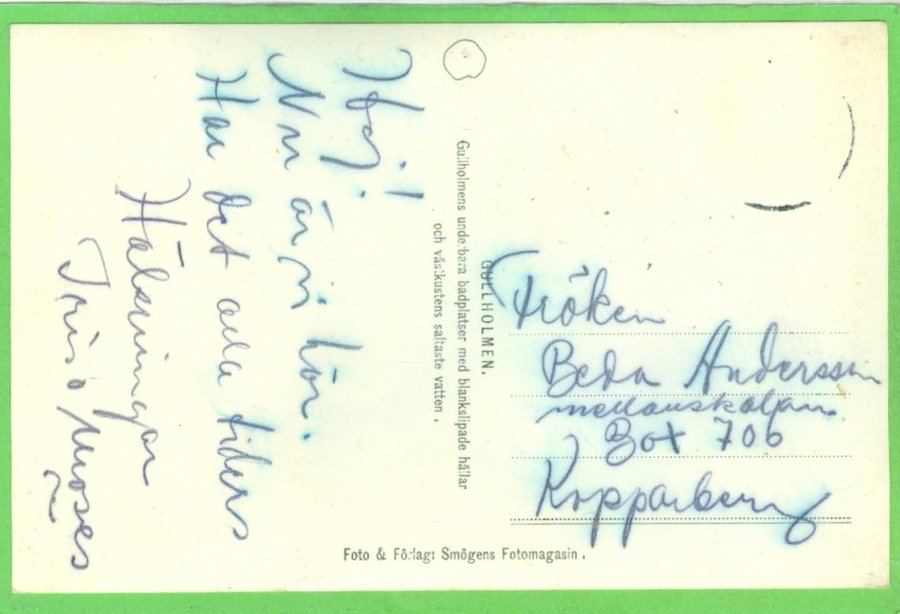 Hej!
Nu är vi här.
Har det alla tiders
Hälsningar
Iris o Moses
GULLHOLMEN.
Gullholmens underbara badplatser med blankslipade hällar
och västkustens saltaste vatten.
Fröken
Beda Andersson
Box 706
Kopparberg
Foto & Förlag: Smögens Fotomagasin.